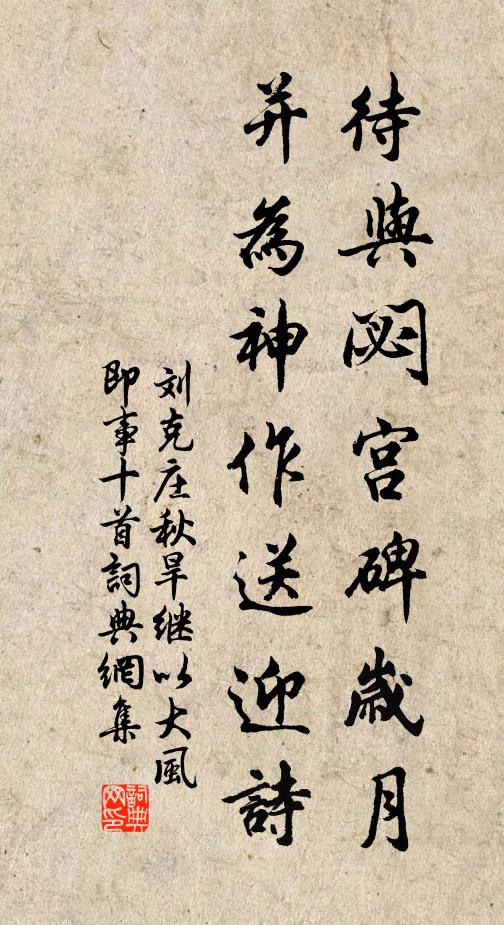 待與閟宫碑歲月
并為神作送迎詩
刘克庄秋旱继以大風
即事十首詞典網集
詞典
网印